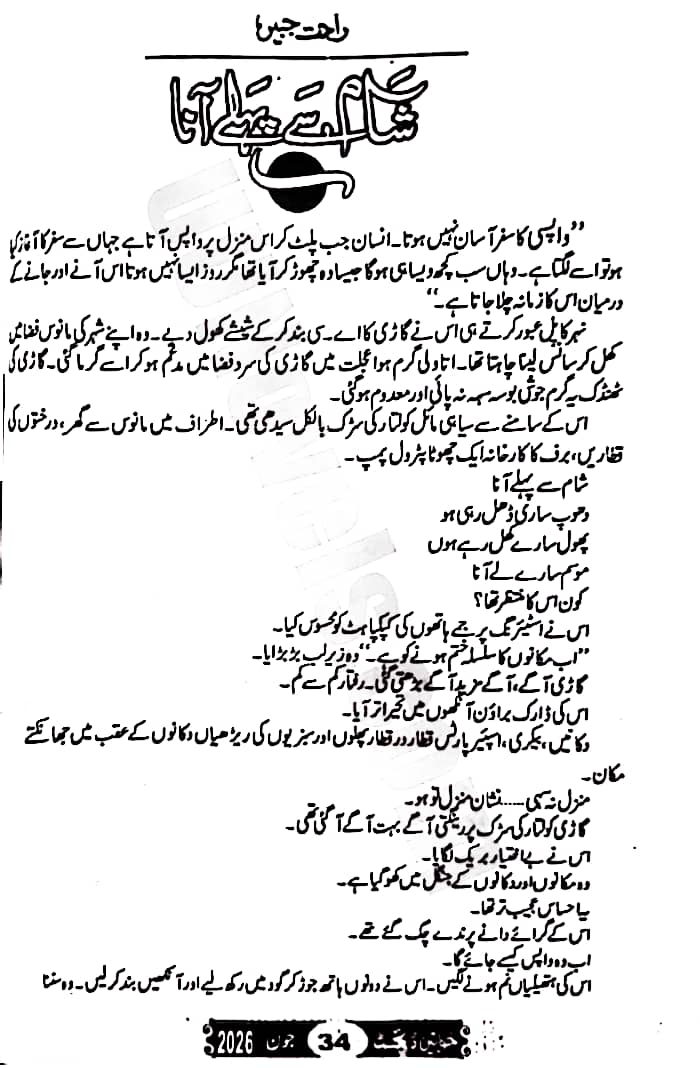 راحت جبیں
شام سے پہلے آنا
”واپسی کا سفر آسان نہیں ہوتا۔ انسان جب پلٹ کر اس منزل پر واپس آتا ہے جہاں سے سفر کا آغاز کیا
ہو تو اسے لگتا ہے۔ وہاں سب کچھ ویسا ہی ہوگا جیسا وہ چھوڑ کر آیا تھا مگر روز ایسا نہیں ہوتا اس آنے اور جانے کے
درمیان اس کا زمانہ چلا جاتا ہے۔“
نہر کا پل عبور کرتے ہی اس نے گاڑی کا اے۔سی بند کر کے شیشے کھول دیے۔ وہ اپنے شہر کی مانوس فضا میں
کھل کر سانس لینا چاہتا تھا۔ اتاولی گرم ہوا عجلت میں گاڑی کی سرد فضا میں مدغم ہو کر اسے گرما گئی۔ گاڑی کی
ٹھنڈک یہ گرم جوش بوسہ سہہ نہ پائی اور معدوم ہوگئی۔
اس کے سامنے سیاہی مائل کولتار کی سڑک بالکل سیدھی تھی۔ اطراف میں مانوس سے گھر، درختوں کی
قطاریں، برف کا کارخانہ ایک چھوٹا پٹرول پمپ۔
شام سے پہلے آنا
دھوپ ساری ڈھل رہی ہو
پھول سارے کھل رہے ہوں
موسم سارے لے آنا
کون اس کا منتظر تھا؟
اس نے اسٹیئرنگ پر جمے ہاتھوں کی کپکپاہٹ کو محسوس کیا۔
”اب مکانوں کا سلسلہ ختم ہونے کو ہے۔“ وہ زیر لب بڑبڑایا۔
گاڑی آگے، آگے مزید آگے بڑھتی گئی۔ رفتار کم سے کم۔
اس کی ڈارک براؤن آنکھوں میں تحیر اتر آیا۔
دکانیں، بیکری، اسپئیر پارٹس قطار در قطار پھلوں اور سبزیوں کی ریڑھیاں دکانوں کے عقب میں جھانکتے
مکان۔
منزل نہ سہی..... نشان منزل تو ہو۔
گاڑی کولتار کی سڑک پر رینگتی آگے بہت آگے آ گئی تھی۔
اس نے بے اختیار بریک لگایا۔
وہ مکانوں اور دکانوں کے جنگل میں کھو گیا ہے۔
یہ احساس عجیب تر تھا۔
اس کے گرائے دانے پرندے چگ گئے تھے۔
اب وہ واپس کیسے جائے گا۔
اس کی ہتھیلیاں نم ہونے لگیں۔ اس نے دونوں ہاتھ جوڑ کر گود میں رکھ لیے اور آنکھیں بند کر لیں۔ وہ سنتا
خواتین ڈائجسٹ 34 جون 2026